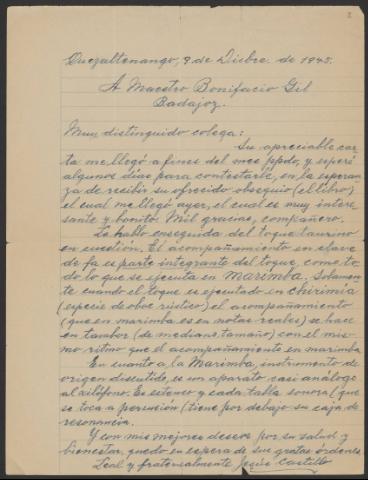 2
Quezaltenango, 9 de Dicbre. de 1945.
A Maestro Bonifacio Gil
Badajoz.
Muy distinguido colega:
Su apreciable car-
ta me llegó a fines del mes ppdo, y esperé
algunos días para contestarle, en la esperan-
za de recibir su ofrecido obsequio (el libro)
el cual me llegó ayer, el cual es muy intere-
sante y bonito. Mil gracias, compañero.
Le hablo enseguida del toque taurino
en cuestión. El acompañamiento en clave
de fa es parte integrante del toque, como to-
do lo que se ejecuta en Marimba. Solamen-
te cuando el toque es ejecutado en chirimía
(especie de oboe rústico) el acompañamiento
(que en marimba es en notas reales) se hace
en tambor (de median. tamaño) con el mis-
mo ritmo que el acompañamiento en marimba
En cuanto a la Marimba, instrumento de
origen discutido, es un aparato casi análogo
al xilófono. Es extenso y cada tabla sonora (que
se toca a percusión) tiene por debajo su caja de
resonancia.
Y con mis mejores deseos por su salud y
bienestar, quedo en espera de sus gratas órdenes.
Leal y fraternalmente Jesús Castillo